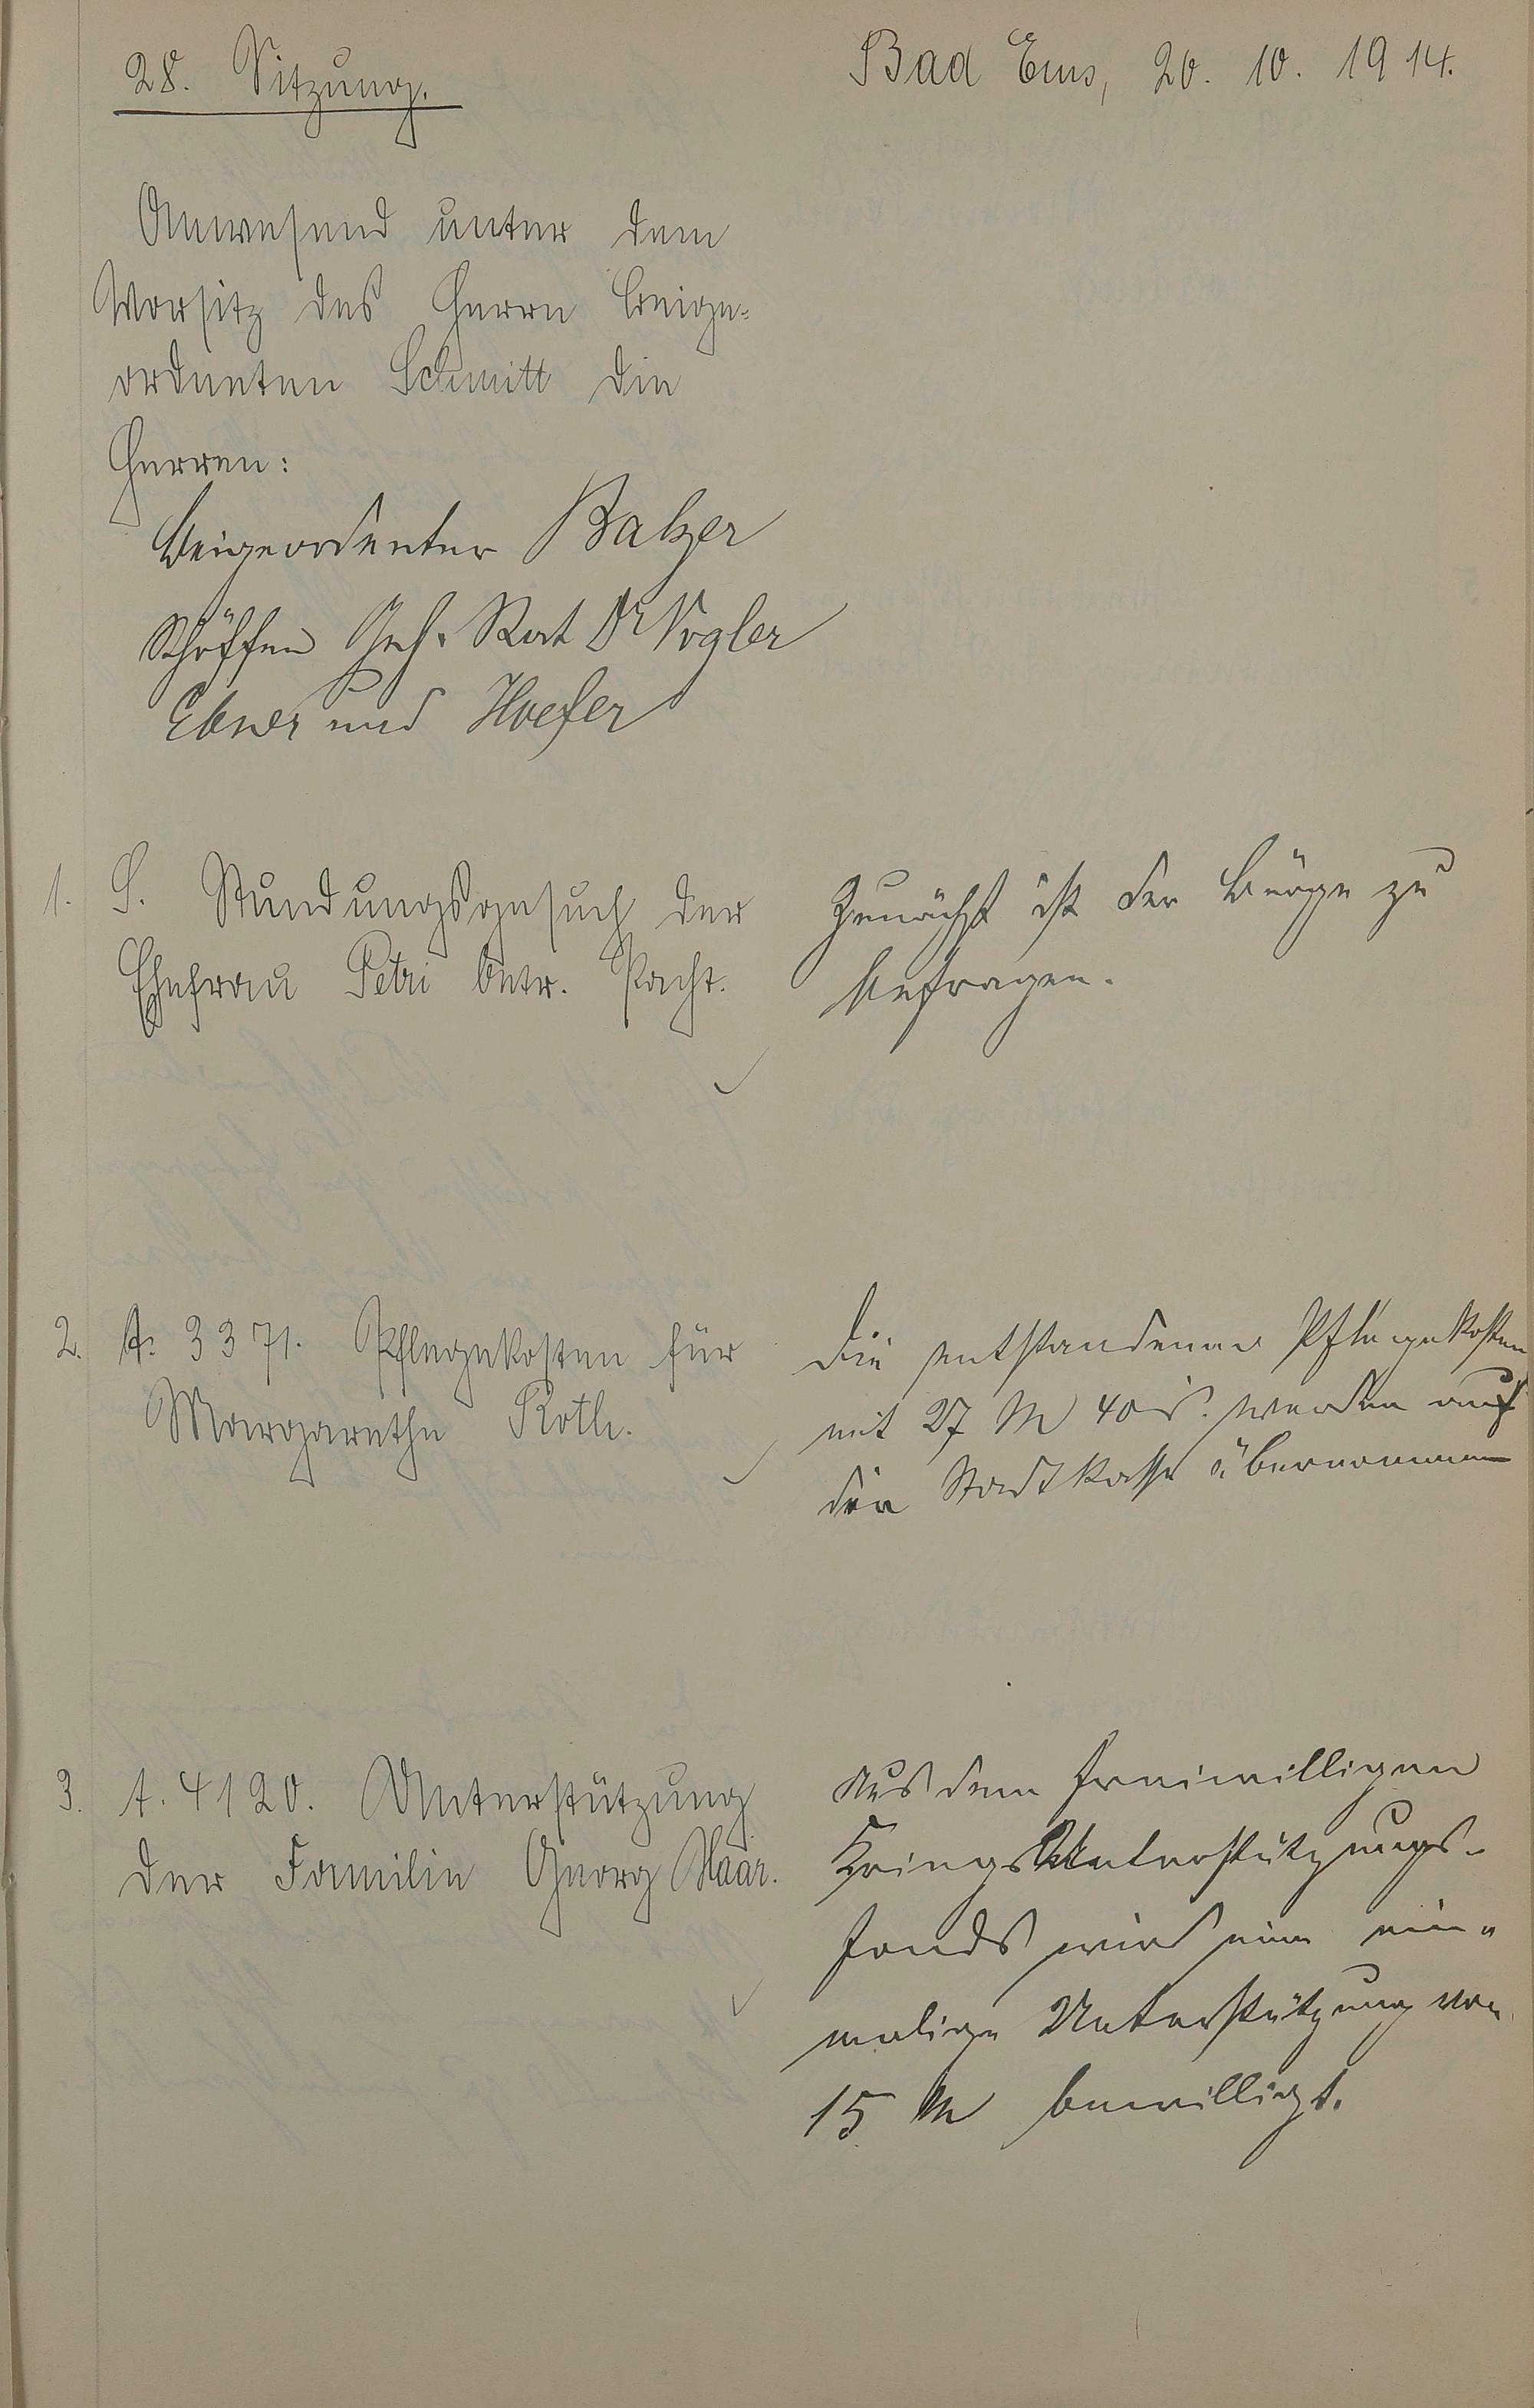 28. Sitzung.
Bad Ems, 20. 10. 1914.
Anwesend unter dem
Vorsitz des Herrn Beige-
ordneten Schmitt die
Herren:
Beigeordneter Balzer
Schöffen Geh. Rat Dr Vogler
Ebner und Hoefer
1. S. Stundungsgesuch der
Ehefrau Petri betr. Pacht.
Zunächst ist der Bürge zu
befragen.
2. A. 3371. Pflegekosten für
Margarethe Roth.
Die entstandenen Pflegekosten
mit 27 M 40 werden auf
die Stadtkasse übernommen
3. A. 4120. Unterstützung
der Familie Georg Haar.
Aus dem freiwilligen
KriegsUnterstützungs-
fonds wird eine ein-
malige Unterstützung von
15 M bewilligt.